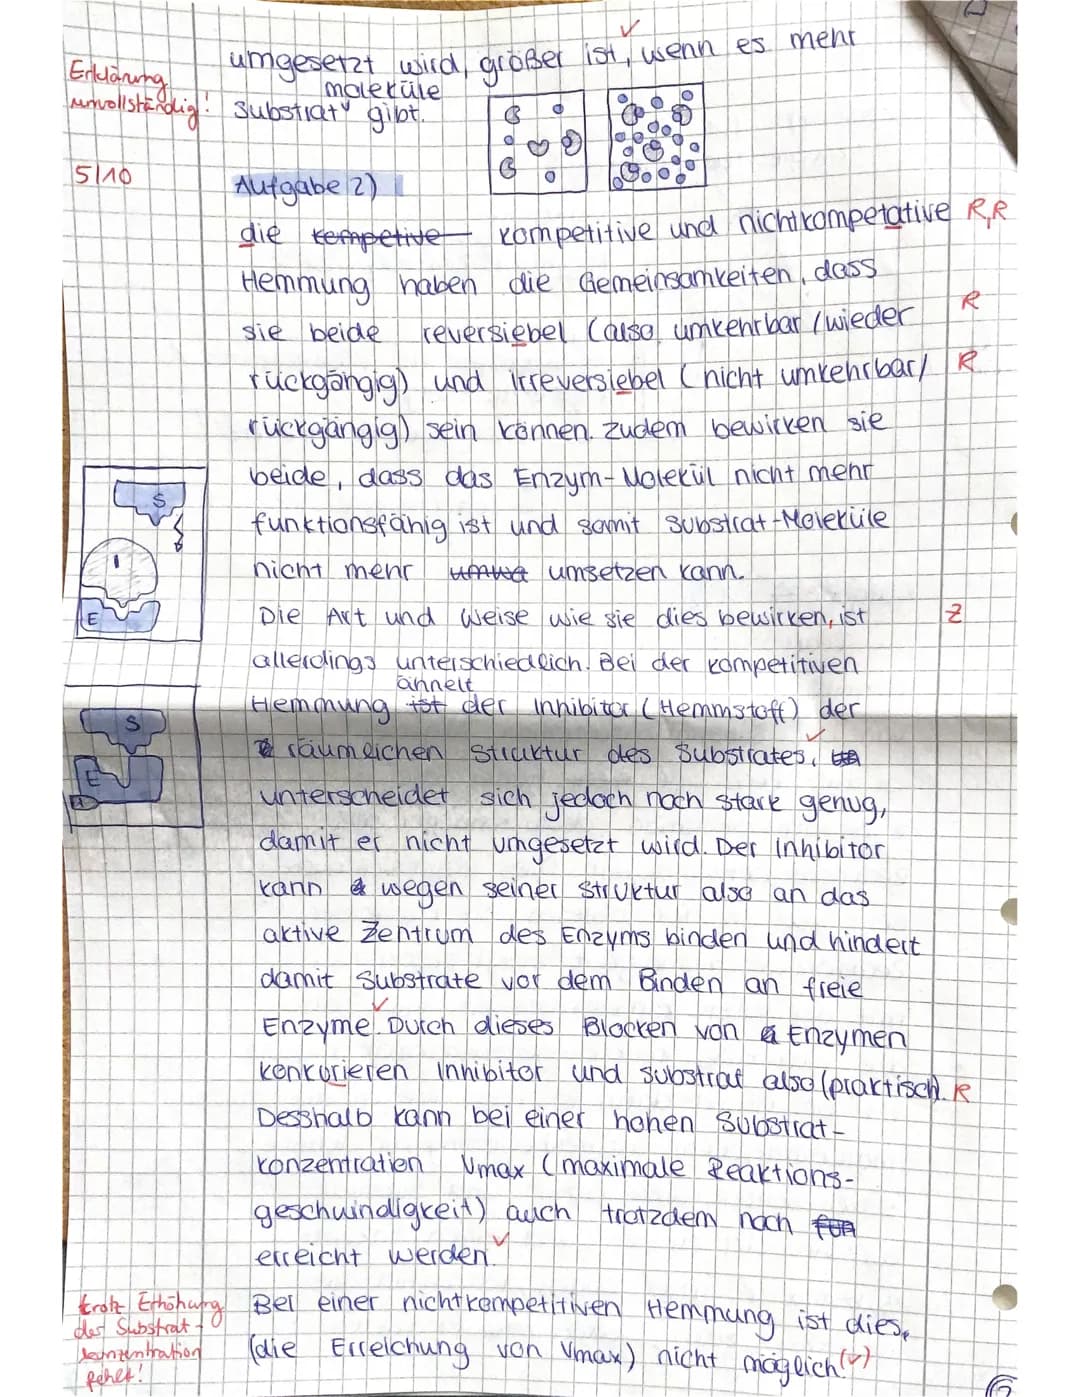 umgesetzt wird, größer ist, wenn es mehr
Erklärung unvollständig!
moleküle
Substrat gibt.
5/10
Aufgabe 2)
die kempetive kompetitive und nichtkompetative R,R
Hemmung haben die Gemeinsamkeiten, dass
sie beide reversiebel (also umkehrbar / wieder R
rückgängig) und irreversiebel (nicht umkehrbar/ R
rückgängig) sein können. Zudem bewirken sie
beide, dass das Enzym-Molekül nicht mehr
S
funktionsfähig ist und somit Substrat-Moleküle
I
nicht mehr umsetzen kann.
E
Die Art und Weise wie sie dies bewirken, ist Z
allerdings unterschiedlich. Bei der kompetitiven
ähnelt
Hemmung ist der Inhibitor (Hemmstoff) der
S
räumlichen Struktur des Substrates,
E
unterscheidet sich jedoch noch stark genug,
damit er nicht umgesetzt wird. Der Inhibitor
kann wegen seiner Struktur also an das
aktive Zentrum des Enzyms binden und hindert
damit Substrate vor dem Binden an freie
Enzyme. Durch dieses Blocken von Enzymen
konkurieren Inhibitor und Substrat also (praktisch). R
Desshalb kann bei einer hohen Substrat-
konzentration Vmax (maximale Reaktions-
geschwindigkeit) auch trotzdem noch
erreicht werden.
trotz Erhöhung
der Substrat-
konzentration
fehlt!
Bei einer nichtkompetitiven Hemmung ist dies,
(die Erreichung von Vmax) nicht möglich.